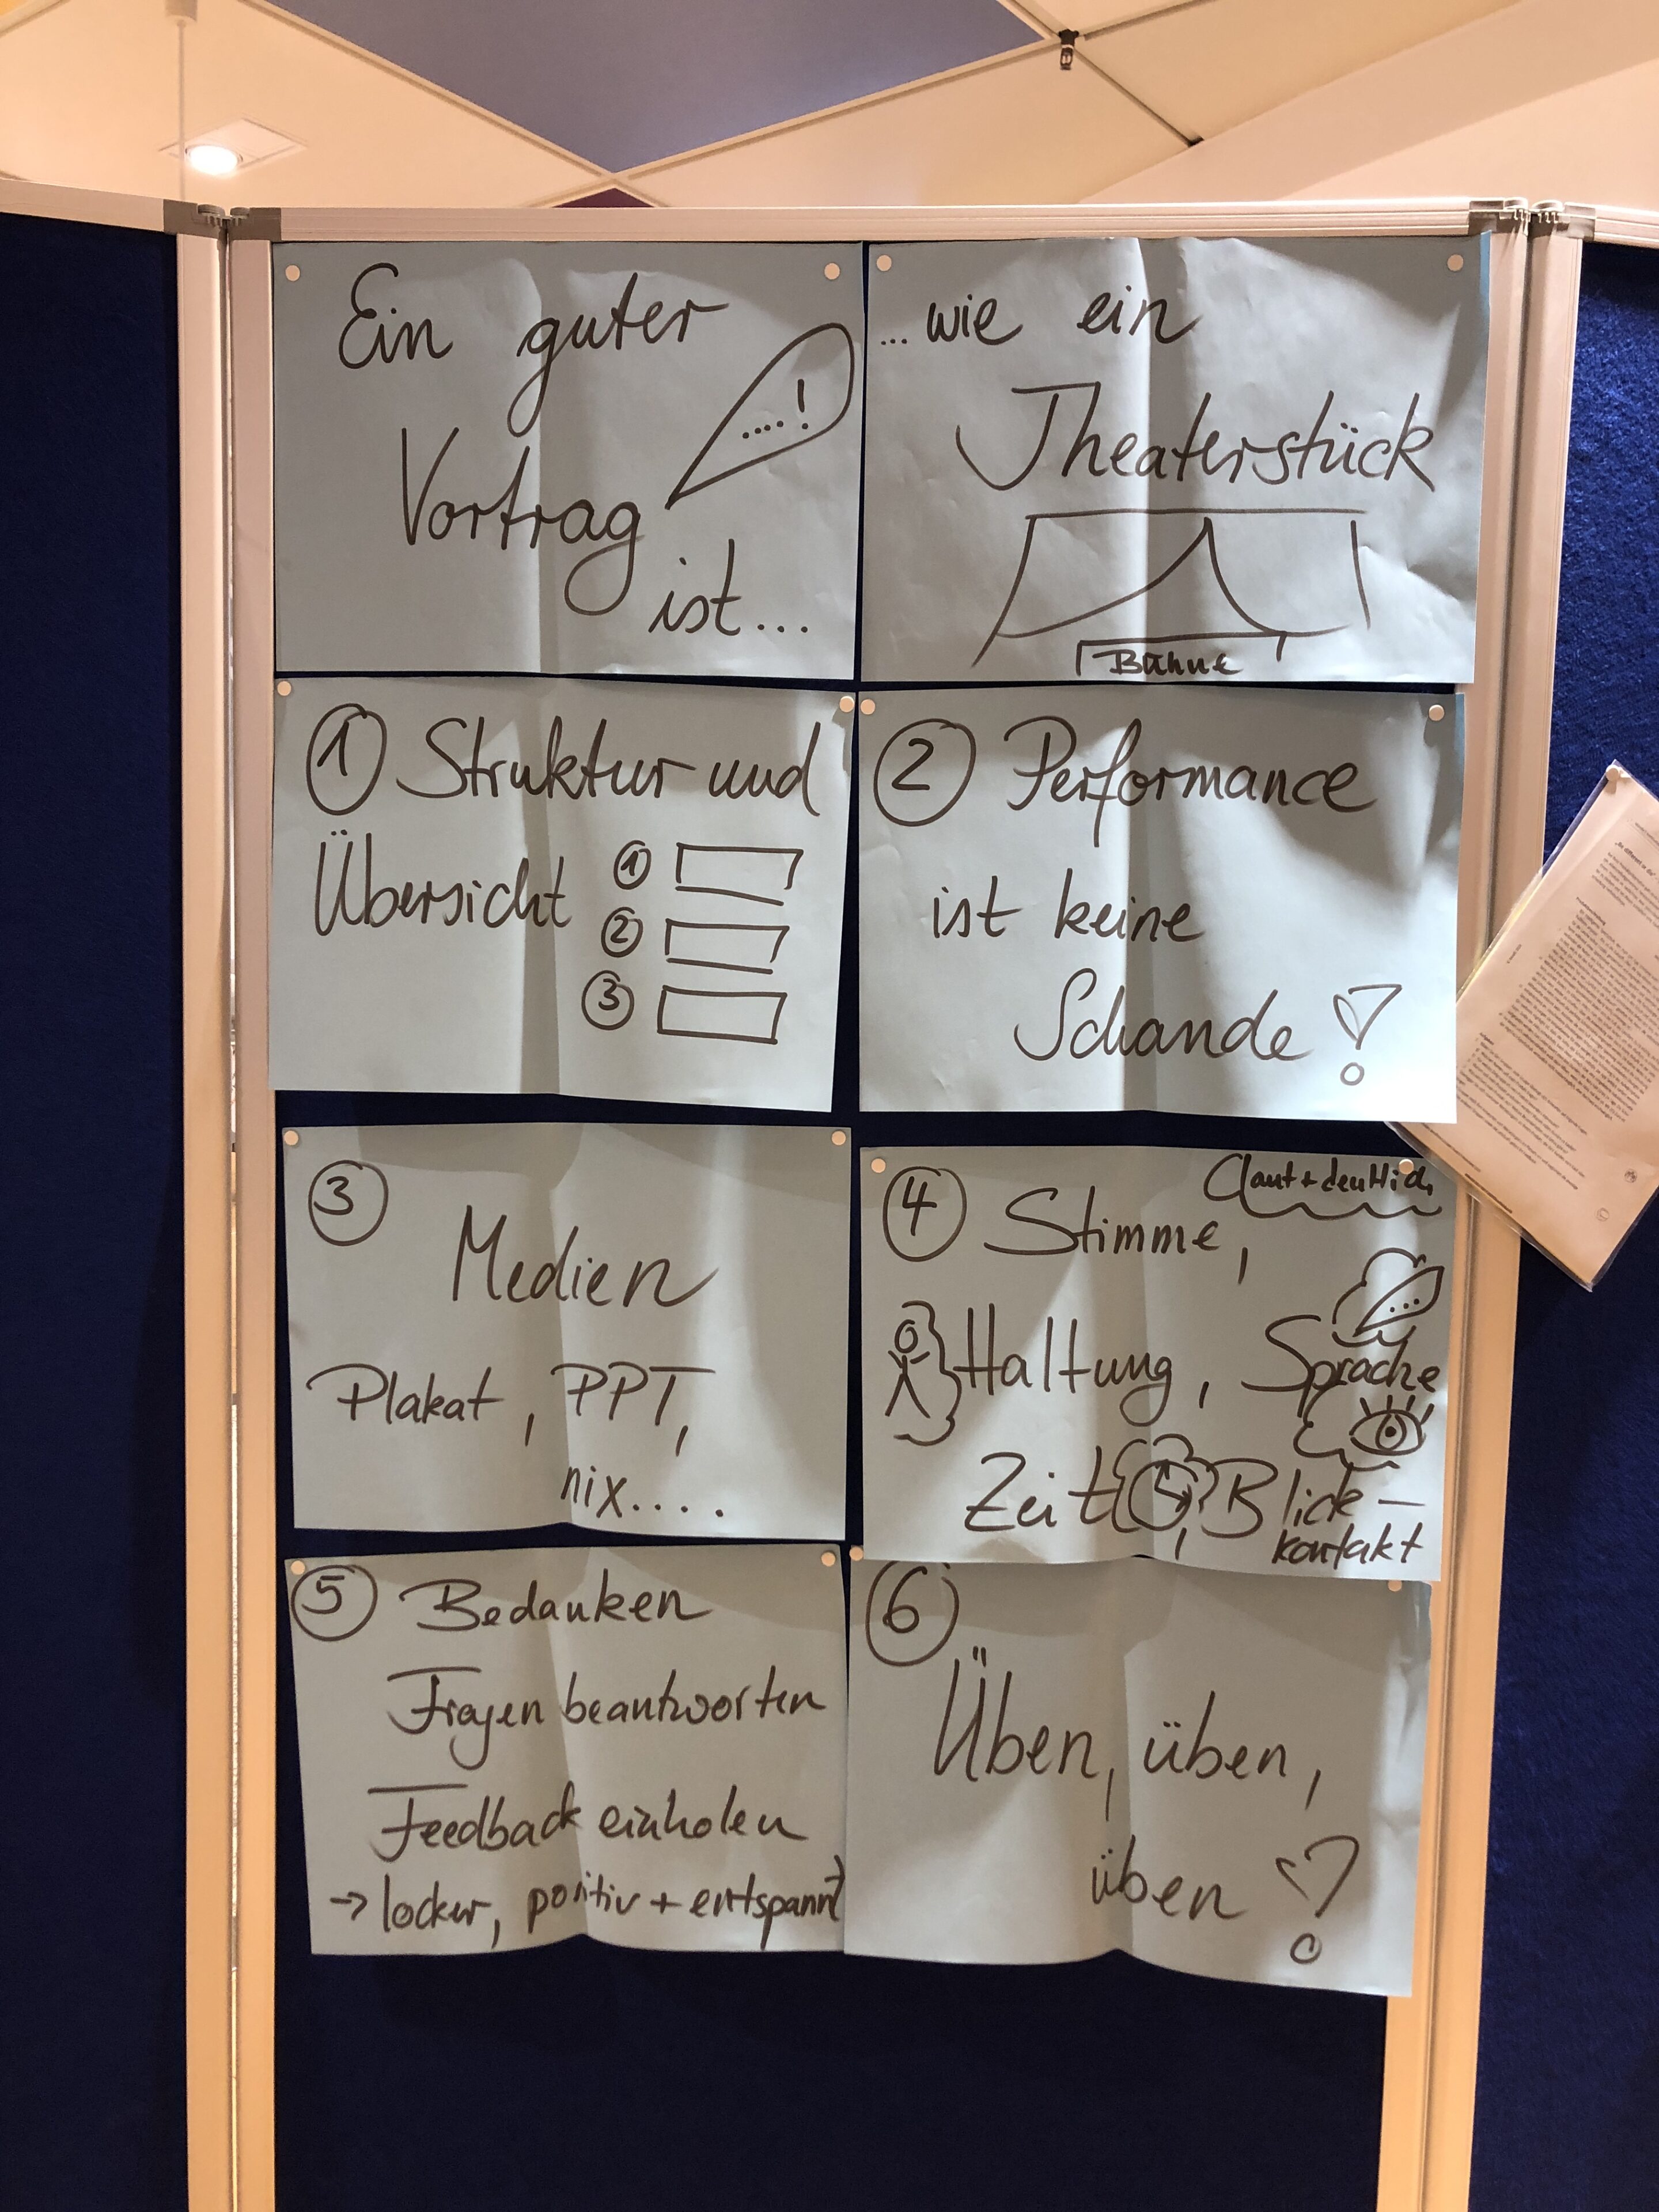 Ein guter
....!
Vortrag
ist...
...wie ein
Theaterstück
Bühne
① Struktur und
Übersicht
①
②
③
② Performance
ist keine
Schande!
③
Medien
Plakat, PPT,
nix....
④ Stimme,
laut + deutlich
Haltung, Sprache
...
Zeit, Blick-
kontakt
⑤ Bedanken
Fragen beantworten
Feedback einholen
→ locker, positiv + entspannt
⑥
Üben, üben,
üben!